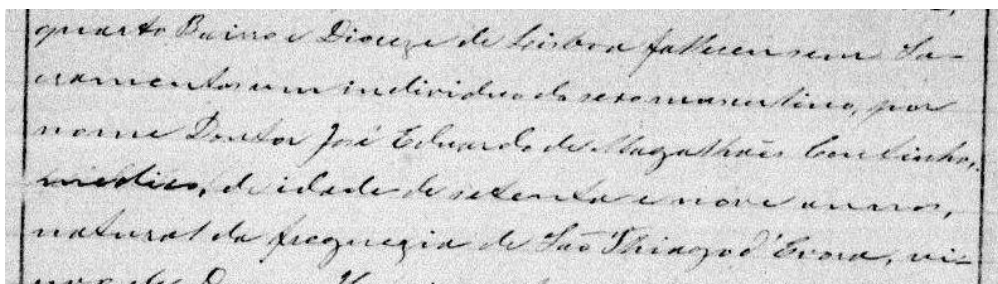 quarto Bairro e Diocese de Lisboa falleceu sem Sa-
cramentos um individuo do sexo masculino, por
nome Doutor José Eduardo de Magalhães Coutinho,
medico, de idade de setenta e nove annos,
natural da freguezia de São Thiago d'Evora, vi-
uvo de Dona